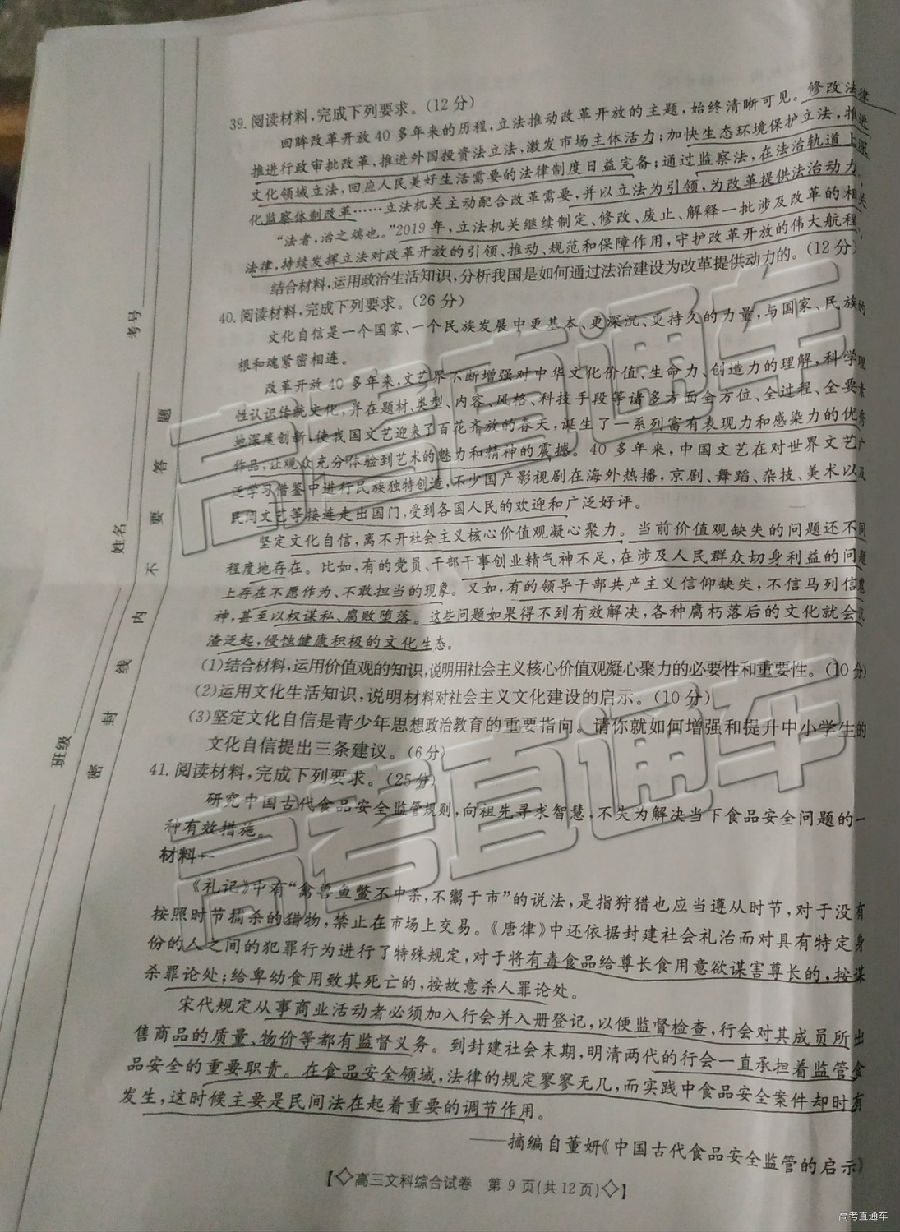 39. 阅读材料,完成下列要求。(12分)
回眸改革开放40多年来的历程,立法推动改革开放的主题,始终清晰可见。修改法律
推进行政审批改革,推进外国投资法立法,激发市场主体活力;加快生态环境保护立法,推进
文化领域立法,回应人民美好生活需要的法律制度日益完备;通过监察法,在法治轨道上深
化监察体制改革……立法机关主动配合改革需要,并以立法为引领、为改革提供法治动力。
“法者,治之端也。”2019年,立法机关继续制定、修改、废止、解释一批涉及改革的相关
法律,持续发挥立法对改革开放的引领、推动、规范和保障作用,守护改革开放的伟大航程。
结合材料,运用政治生活知识,分析我国是如何通过法治建设为改革提供动力的。(12分)
40. 阅读材料,完成下列要求。(26分)
文化自信是一个国家、一个民族发展中更基本、更深沉、更持久的力量,与国家、民族的
根和魂紧密相连。
改革开放40多年来,文艺界不断增强对中华文化价值、生命力、创造力的理解,科学理
性认识传统文化,并在题材、类型、内容、风格、科技手段等诸多方面全方位、全过程、全要素
地深度创新,使我国文艺迎来了百花齐放的春天,诞生了一系列富有表现力和感染力的优秀
作品,让观众充分体验到艺术的魅力和精神的震撼。40多年来,中国文艺在对世界文艺广
泛学习借鉴中进行民族独特创造,不少国产影视剧在海外热播,京剧、舞蹈、杂技、美术以及
民间文艺等接连走出国门,受到各国人民的欢迎和广泛好评。
坚定文化自信,离不开社会主义核心价值观凝心聚力。当前价值观缺失的问题还不同
程度地存在。比如,有的党员、干部干事创业精气神不足,在涉及人民群众切身利益的问题
上存在不愿作为、不敢担当的现象。又如,有的领导干部共产主义信仰缺失,不信马列信鬼
神,甚至以权谋私、腐败堕落。这些问题如果得不到有效解决,各种腐朽落后的文化就会沉
渣泛起,侵蚀健康积极的文化生态。
(1)结合材料,运用价值观的知识,说明用社会主义核心价值观凝心聚力的必要性和重要性。(10分)
(2)运用文化生活知识,说明材料对社会主义文化建设的启示。(10分)
(3)坚定文化自信是青少年思想政治教育的重要指向。请你就如何增强和提升中小学生的
文化自信提出三条建议。(6分)
41. 阅读材料,完成下列要求。(25分)
研究中国古代食品安全监管规则,向祖先寻求智慧,不失为解决当下食品安全问题的一
种有效措施。
材料一
《礼记》中有“禽兽鱼鳖不中杀,不鬻于市”的说法,是指狩猎也应当遵从时节,对于没有
按照时节捕杀的猎物,禁止在市场上交易。《唐律》中还依据封建社会礼治而对具有特定身
份的人之间的犯罪行为进行了特殊规定,对于将有毒食品给尊长食用意欲谋害尊长的,按谋
杀罪论处;给卑幼食用致其死亡的,按故意杀人罪论处。
宋代规定从事商业活动者必须加入行会并入册登记,以便监督检查,行会对其成员所出
售商品的质量、物价等都有监督义务。到封建社会末期,明清两代的行会一直承担着监管食
品安全的重要职责。在食品安全领域,法律的规定寥寥无几,而实践中食品安全案件却时有
发生,这时候主要是民间法在起着重要的调节作用。
——摘编自董妍《中国古代食品安全监管的启示》
【◇高三文科综合试卷 第9页(共12页)◇】
班级
姓名
考号
密封线内不要答题
高考直通车
高考直通车
高考直通车